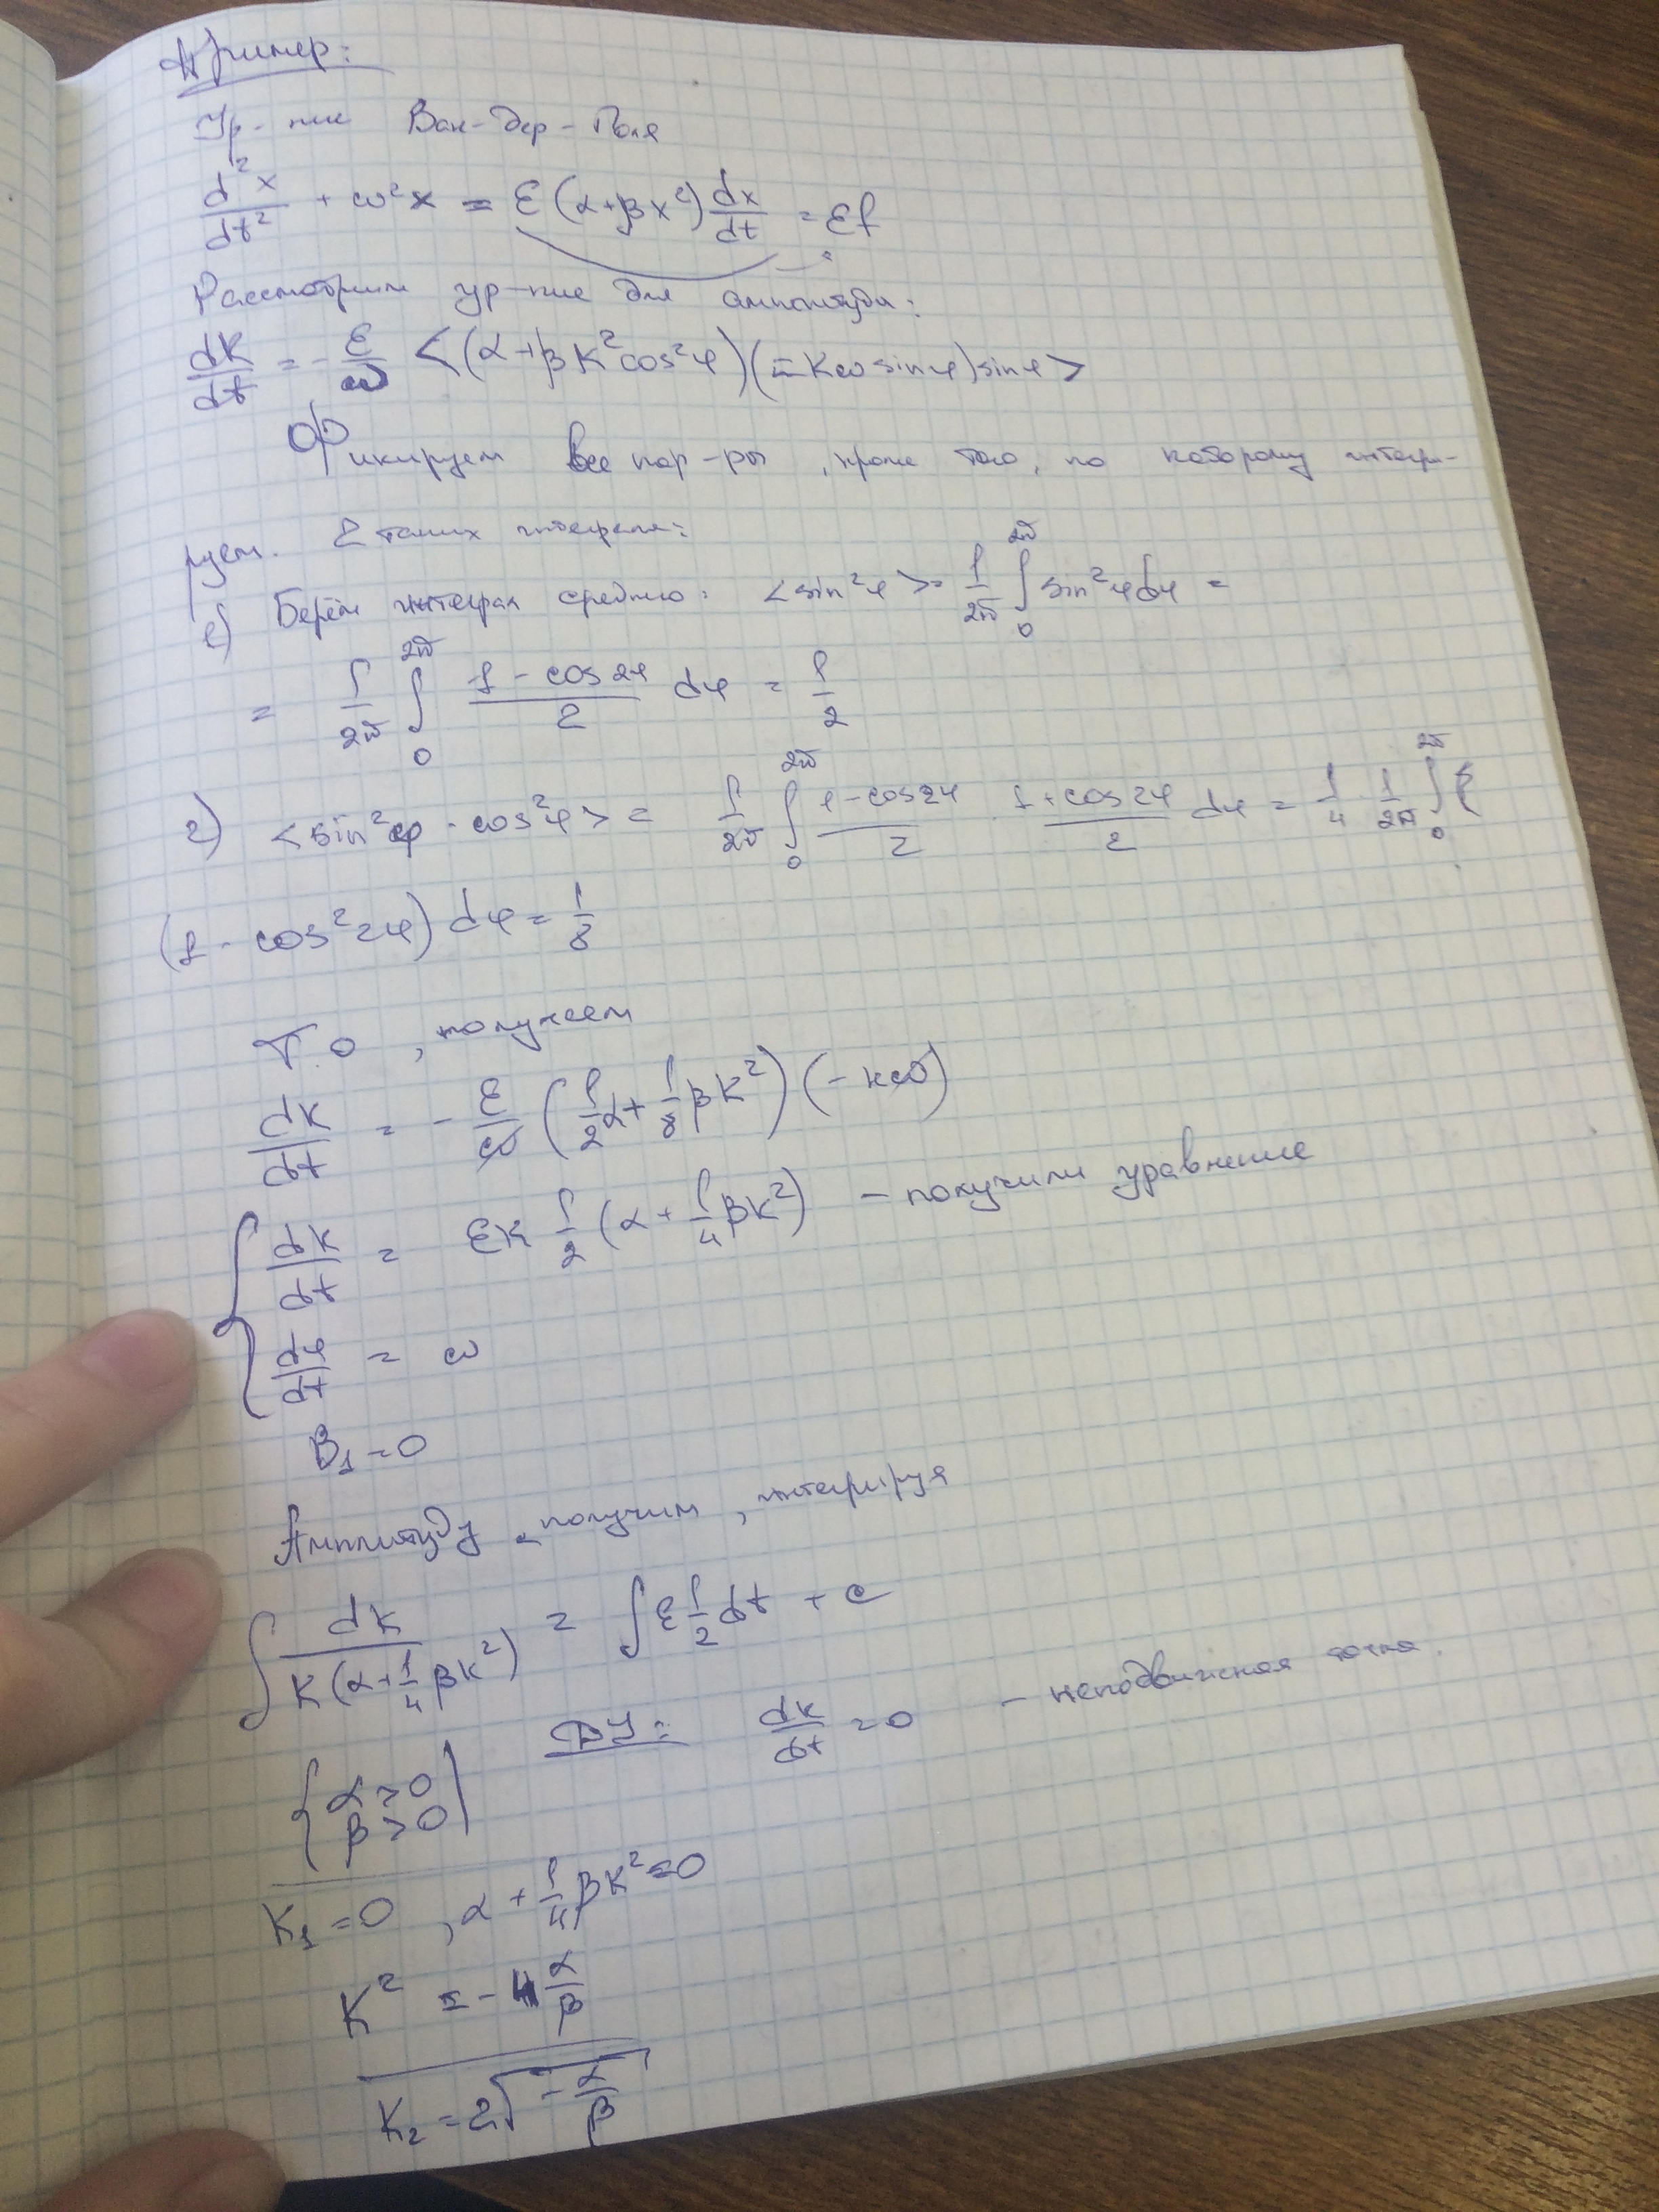 Пример:
Ур-ние Ван-дер-Поля
d²x/dt² + ω²x = ε(α+βx²)dx/dt = εf
Рассмотрим ур-ние для амплитуды:
dK/dt = -ε/ω <(α+βK²cos²φ)(-Kω sinφ)sinφ>
Фиксируем все пар-ры, кроме того, по которому интегри-
руем. 2 таких интеграла:
1) Берём интеграл средню: <sin²φ> = 1/2π ∫₀^2π sin²φdφ =
= 1/2π ∫₀^2π (1-cos2φ)/2 dφ = 1/2
2) <sin²φ·cos²φ> = 1/2π ∫₀^2π (1-cos2φ)/2 (1+cos2φ)/2 dφ = 1/4 1/2π ∫₀^2π
(1-cos²2φ)dφ = 1/8
Т.о, получаем
dK/dt = -ε/ω (1/2α+1/8βK²)(-Kω)
{ dK/dt = εK 1/2(α+1/4βK²) - получили уравнение
dφ/dt = ω
B₁=0
Амплитуду получим, интегрируя
∫ dK/(K(α+1/4βK²)) = ∫ε1/2dt + c
ДУ: dK/dt = 0 - неподвижная точка.
{ α>0
β>0
K₁=0, α+1/4βK²=0
K² = -4α/β
K₂ = 2√(-α/β)